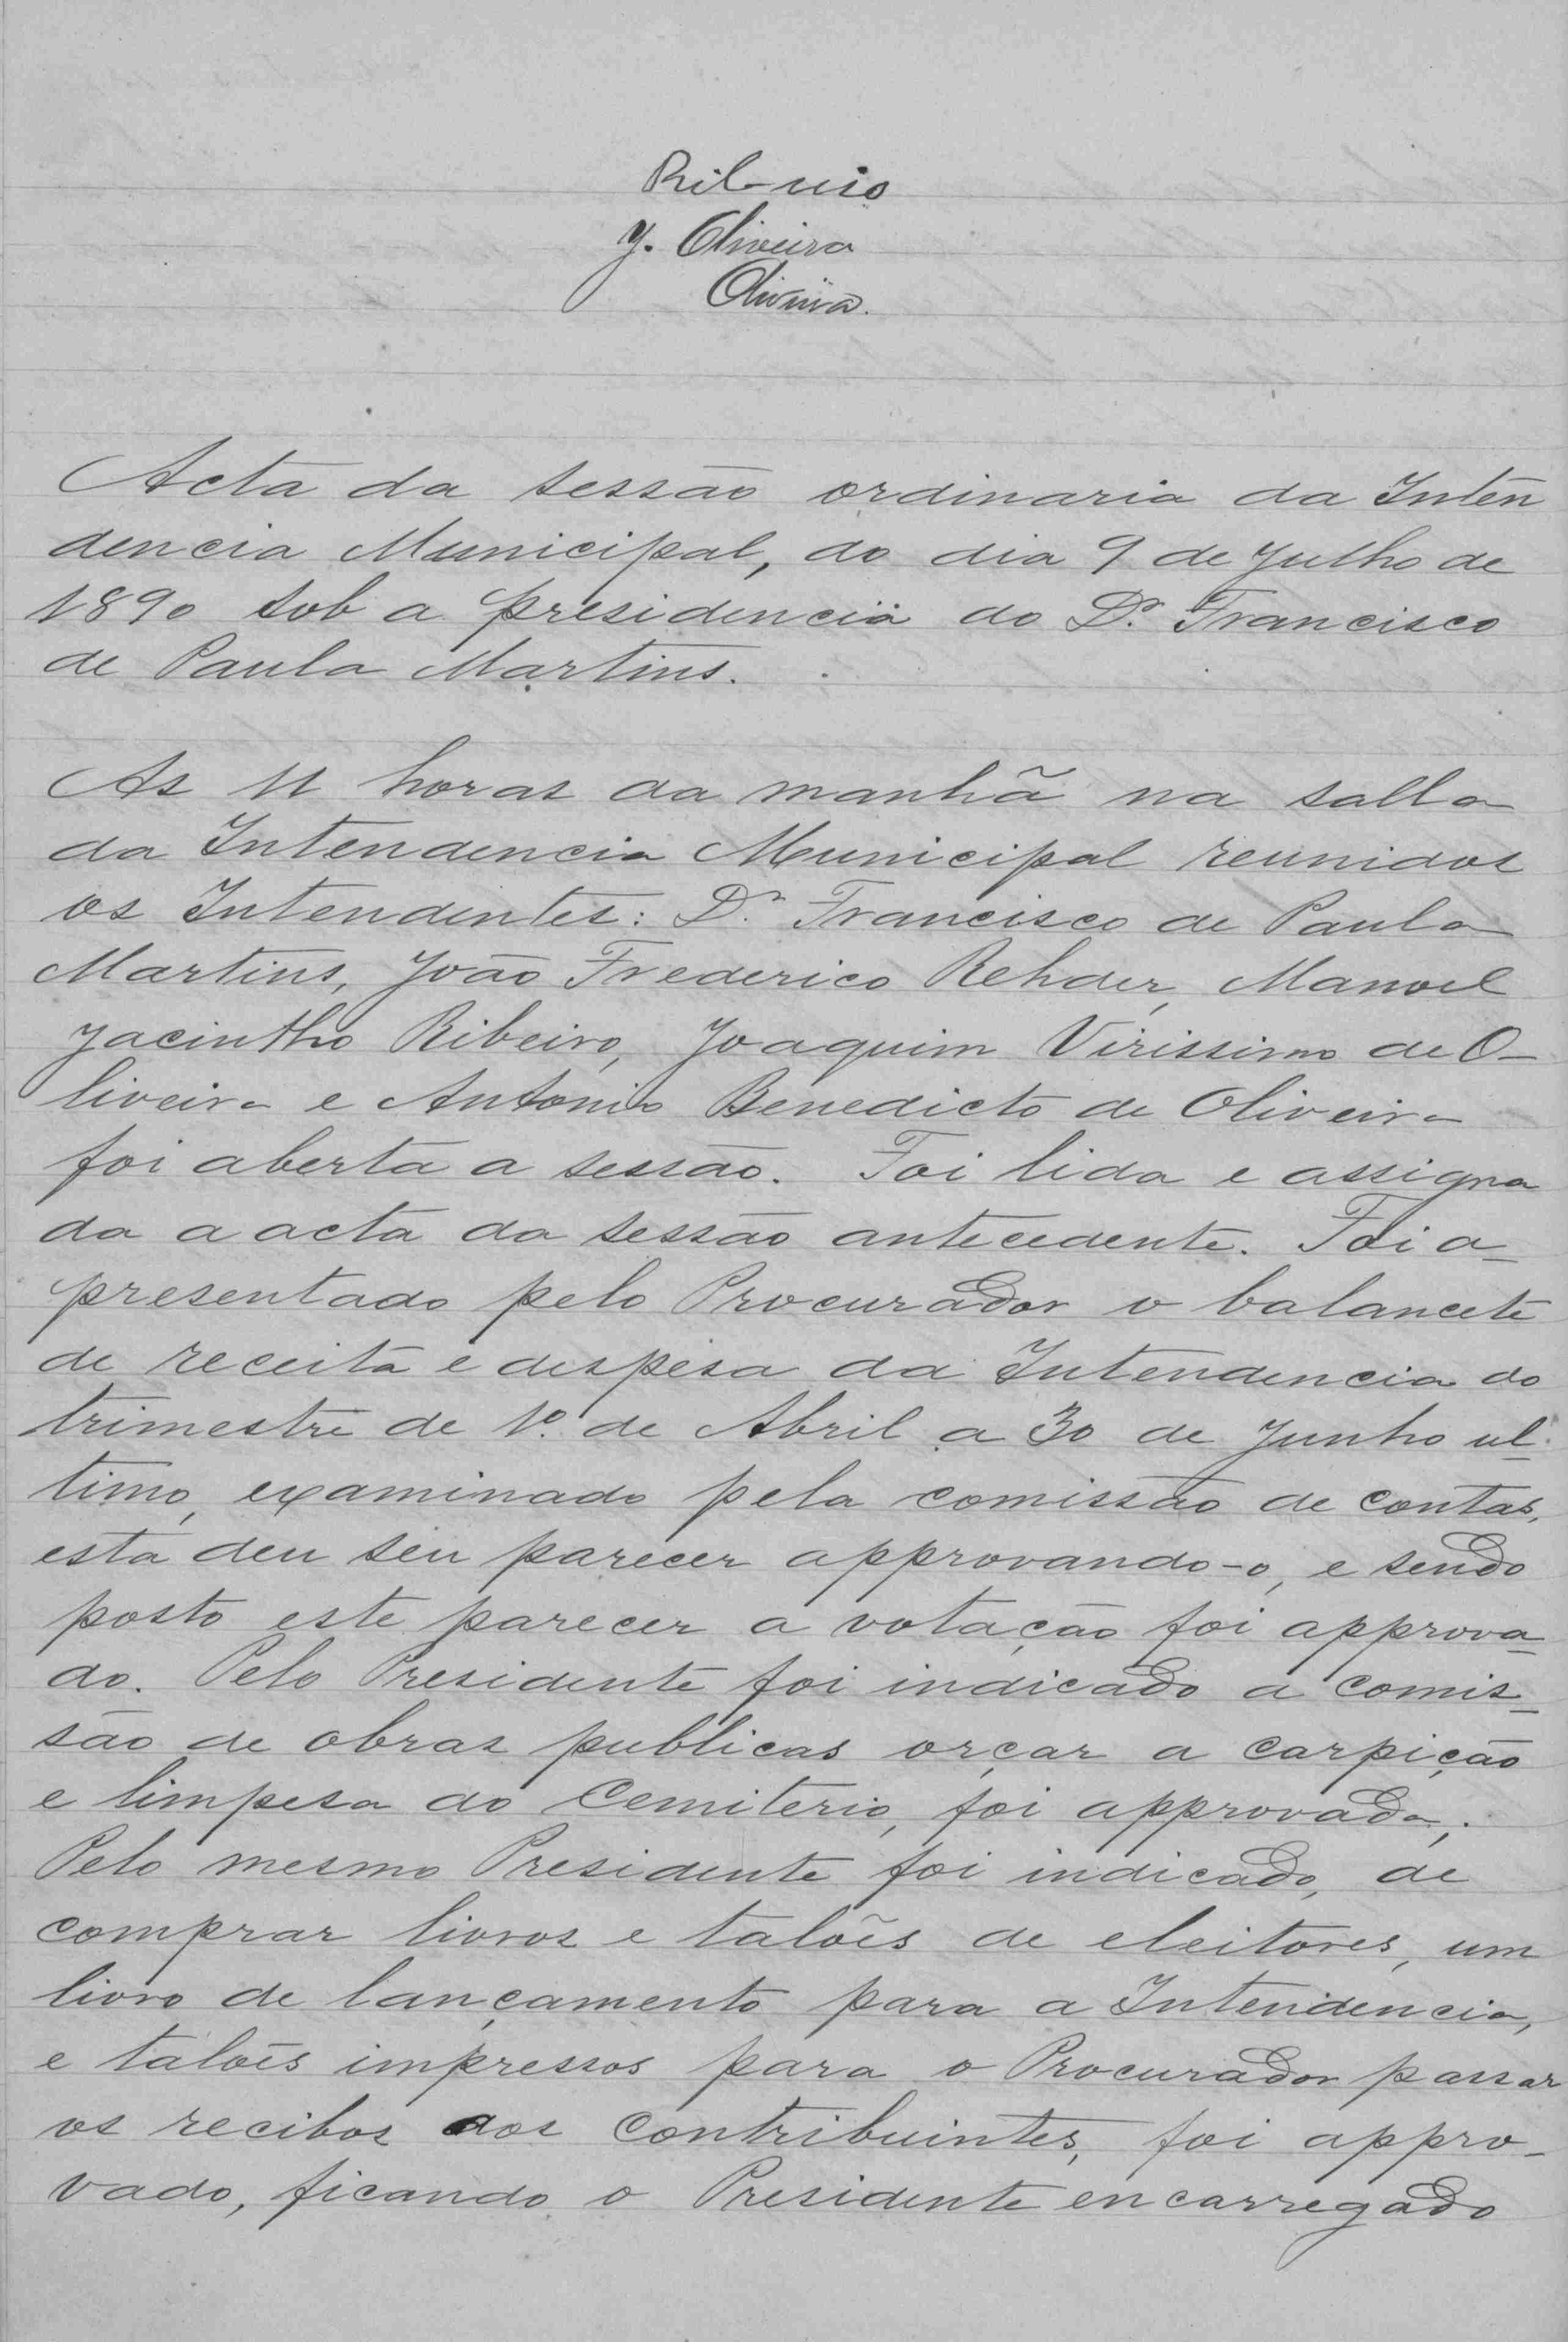 Ribeiro
J. Oliveira
Oliveira.
Acta da sessão ordinaria da Inten
dencia Municipal, do dia 9 de Julho de
1890 sob a presidencia do Dr. Francisco
de Paula Martins.
As 11 horas da manhã na salla
da Intendencia Municipal reunidos
os Intendentes: Dr. Francisco de Paula
Martins, João Frederico Rehder, Manoel
Jacintho Ribeiro, Joaquim Virissimo de O-
liveira e Antonio Benedicto de Oliveira
foi aberta a sessão. Foi lida e assigna
da a acta da sessão antecedente. Foi a-
presentado pelo Procurador o balancete
de receita e despesa da Intendencia do
trimestre de 1º. de Abril a 30 de Junho ul-
timo, examinado pela comissão de contas,
esta deu seu parecer approvando-o, e sendo
posto este parecer a votação foi approva-
do. Pelo Presidente foi indicado a comis-
são de obras publicas orçar a carpição
e limpesa do Cemiterio, foi approvada,.
Pelo mesmo Presidente foi indicado, de
comprar livros e talões de eleitores, um
livro de lançamento para a Intendencia,
e talões impressos para o Procurador passar
os recibos aos contribuintes, foi appro-
vado, ficando o Presidente encarregado